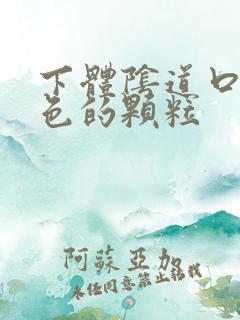 下體陰道口
色的顆粒
阿蘇亞加
未經同意禁止轉載